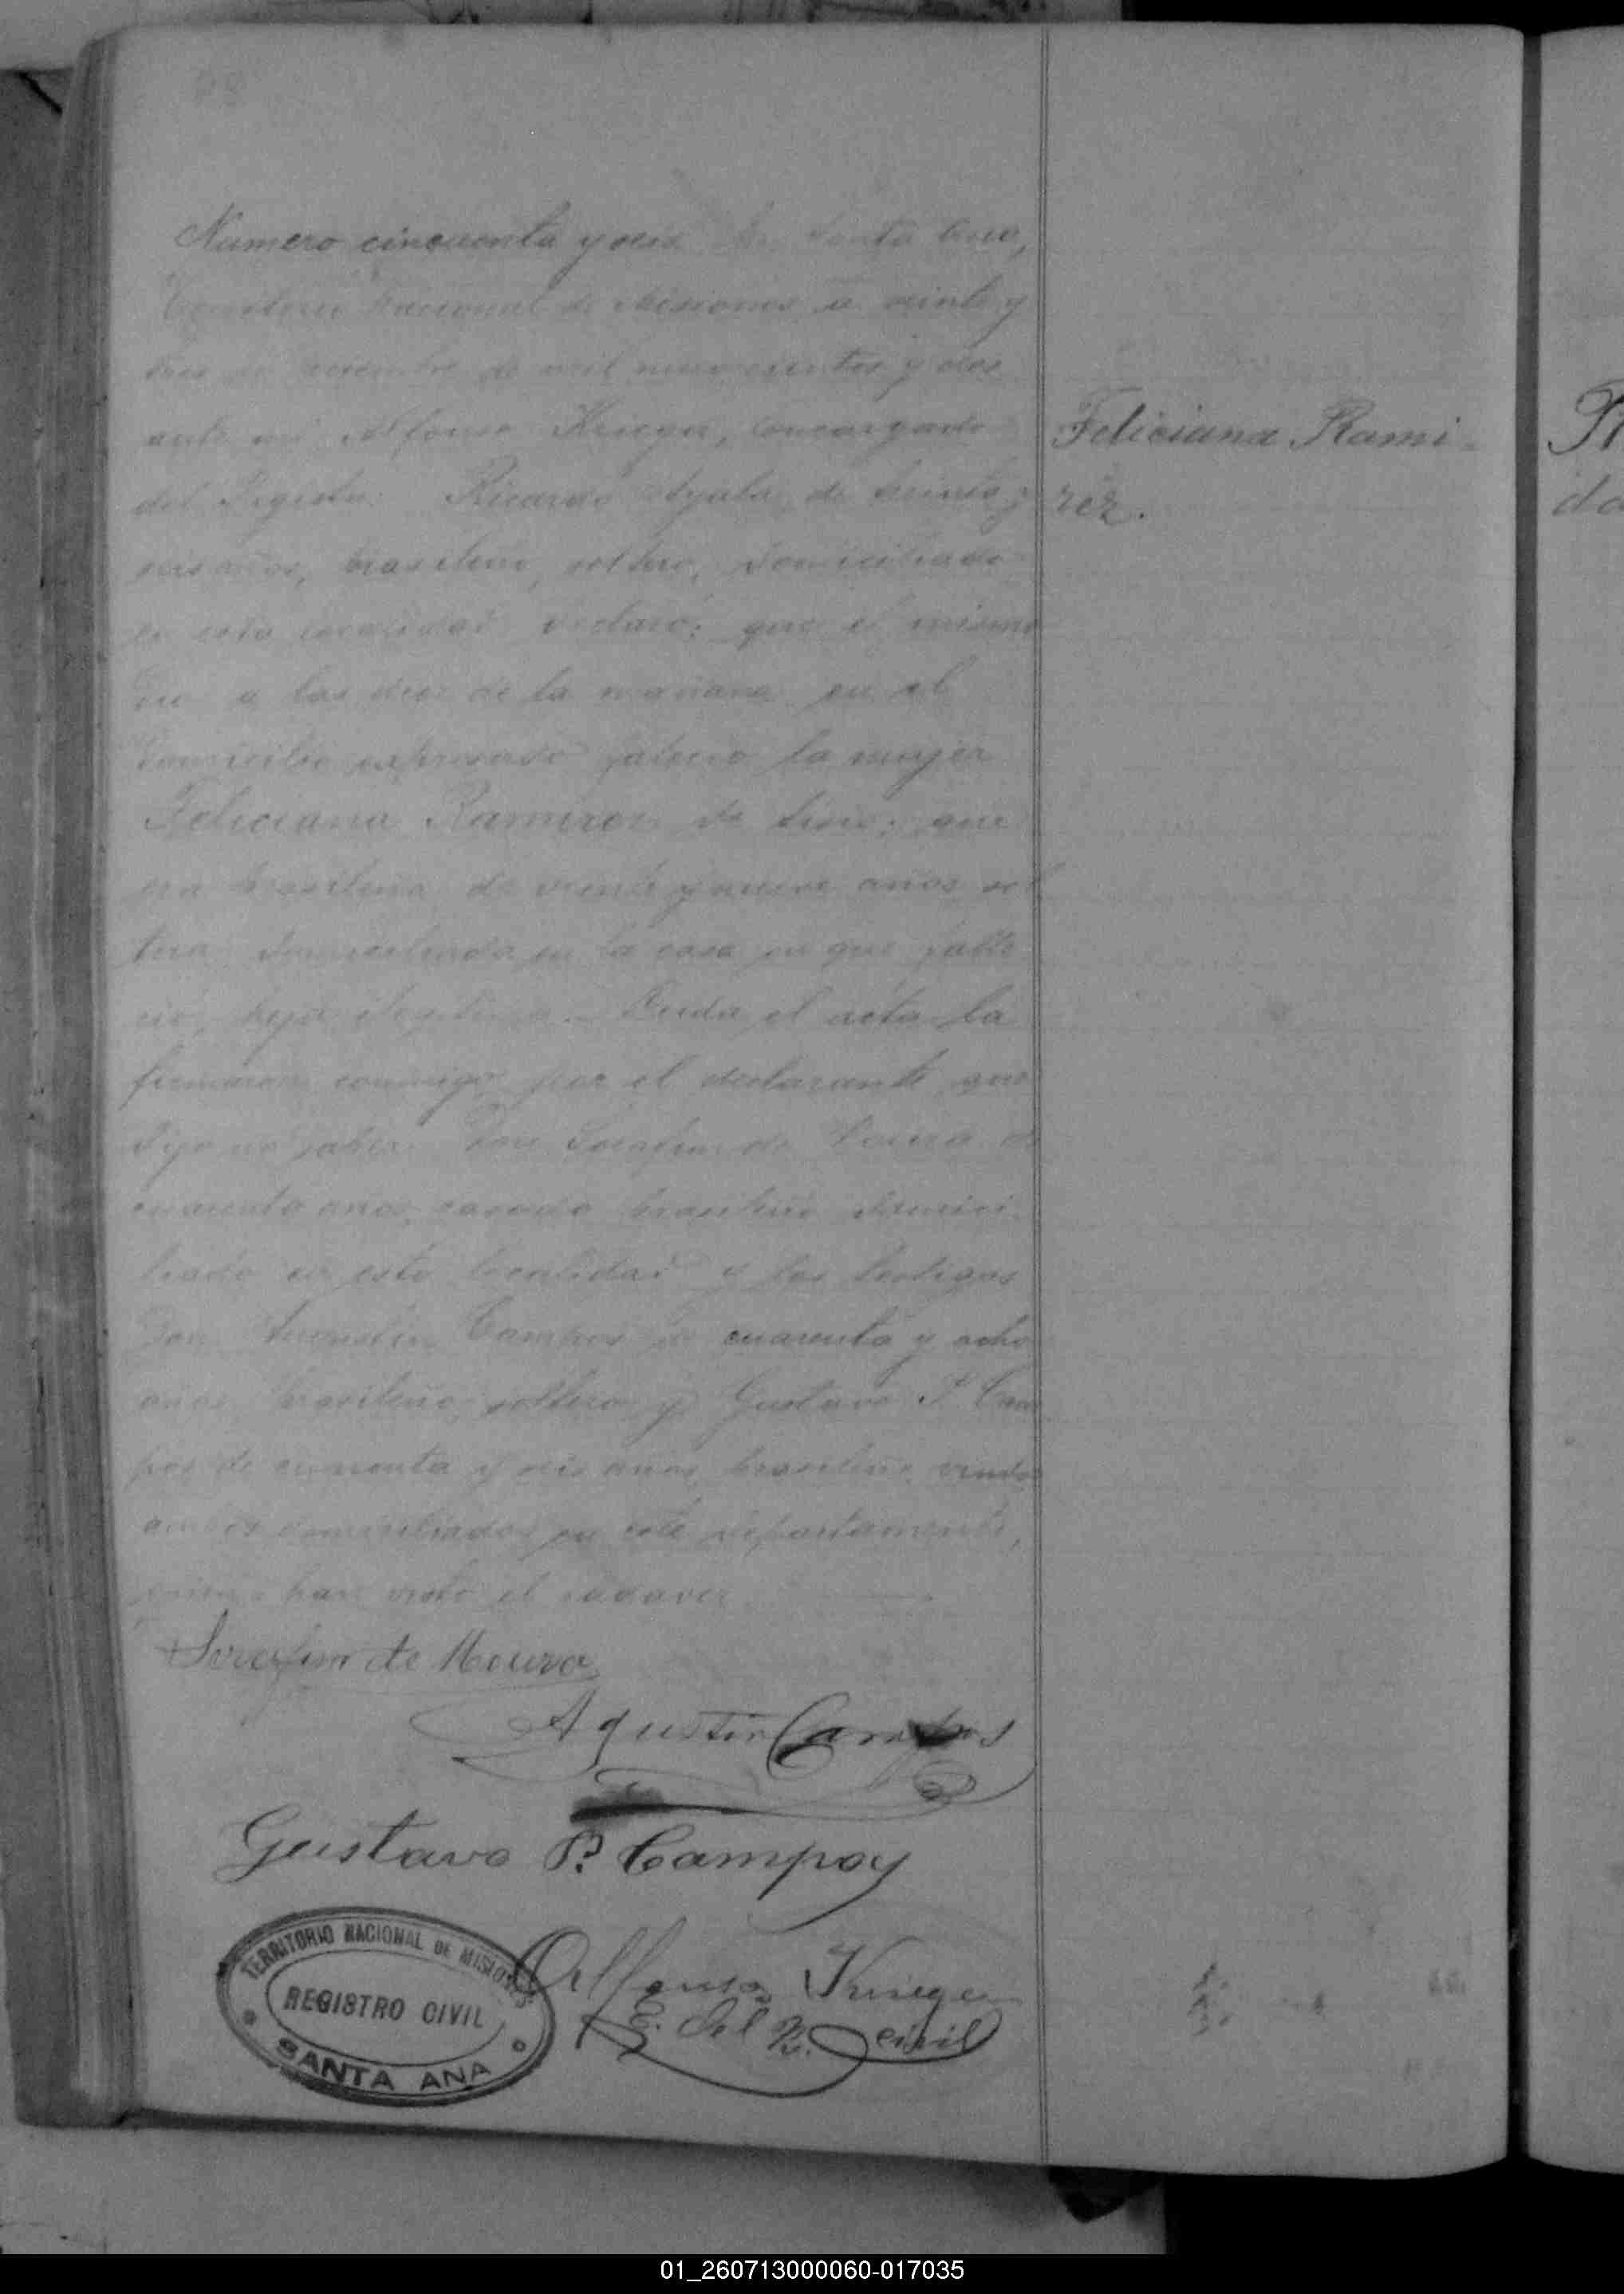 Numero cincuenta y seis En Santa Ana,
Territorio Nacional de Misiones a veinte y
tres de de mil novecientos y dos
ante mi Alfonso Krieger, Encargado
del Registro Ricardo Ayala, de treinta y
seis años, brasilero, soltero, domiciliado
en esta localidad declaró: que el mismo
dia a las diez de la mañana en el
domicilio expresado falleció la mujer
Feliciana Ramirez de que
era brasileña de y nueve años sol
tera domiciliada en la casa en que falle
ció, hija ilegitima. Leida el acta la
firmaron conmigo por el declarante que
dijo no saber Don Serafin de Moura de
cuarenta años, casado brasilero domici
liado en esta localidad y los testigos
Don Agustin Campos de cuarenta y ocho
años, brasilero, soltero y Gustavo P. Cam
pos de y seis años brasilero, viudo
ambos domiciliados en este departamento,
quienes han visto el cadaver
Serafim de Moura
Agustin Campos
Gustavo P. Campos
Alfonso Krieger
E. del R. Civil
TERRITORIO NACIONAL DE MISIONES
REGISTRO CIVIL
SANTA ANA
Feliciana Rami-
rez.
01_260713000060-017035